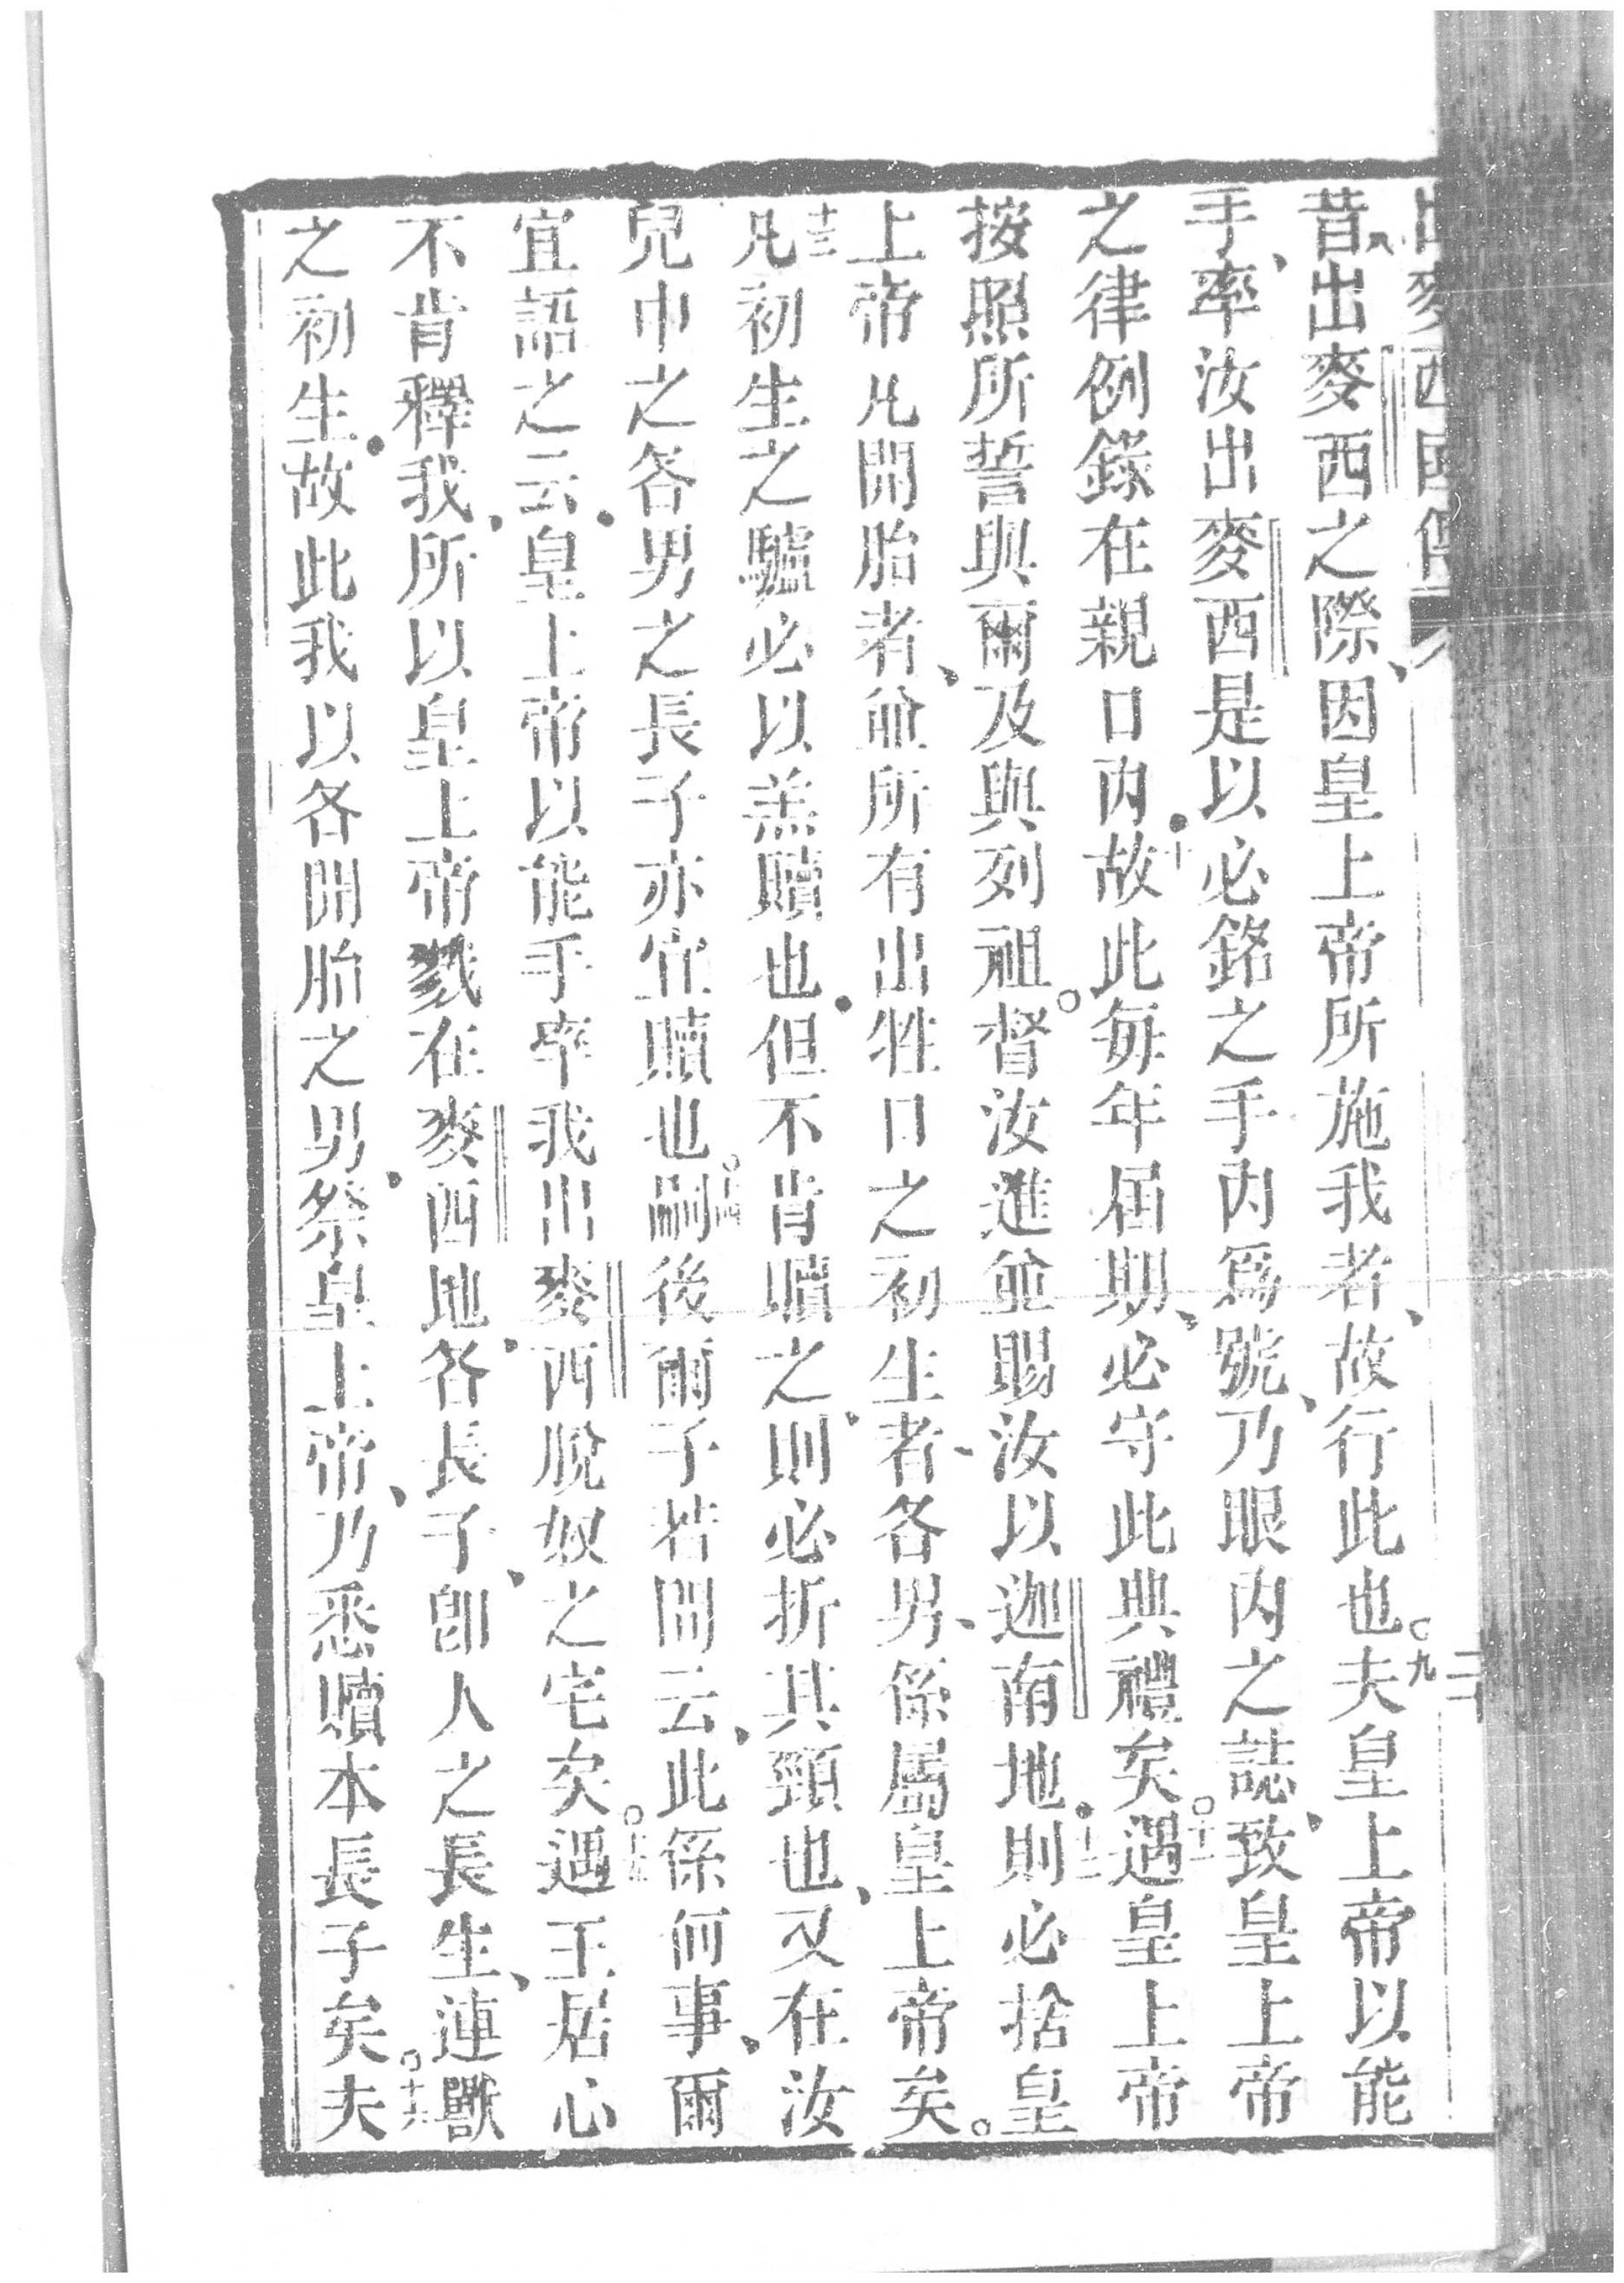 出麥西國傳
二十
昔出麥西之際、因皇上帝所施我者、故行此也○九夫皇上帝以能
手、率汝出麥西是以必銘之手内爲號、乃眼内之誌、致皇上帝
之律例錄在親口内•十故此每年屆期、必守此典禮矣○十一遇皇上帝
按照所誓與爾及與列祖○督汝進並賜汝以迦南地•十二則必捨皇
上帝凡開胎者、並所有出牲口之初生者、各男、係屬皇上帝矣。
十三凡初生之驢必以羔贖也•但不肯贖之、則必折其頸也、又在汝
兒中之各男之長子亦宜贖也○十四嗣後爾子若問云、此係何事、爾
宜語之云•皇上帝以能手率我出麥西脫奴之宅矣○十五遇王居心
不肯釋我、所以皇上帝戮在麥西地、各長子、卽人之長生、連獸
之初生•故此我以各開胎之男、祭皇上帝、乃悉贖本長子矣○十六夫